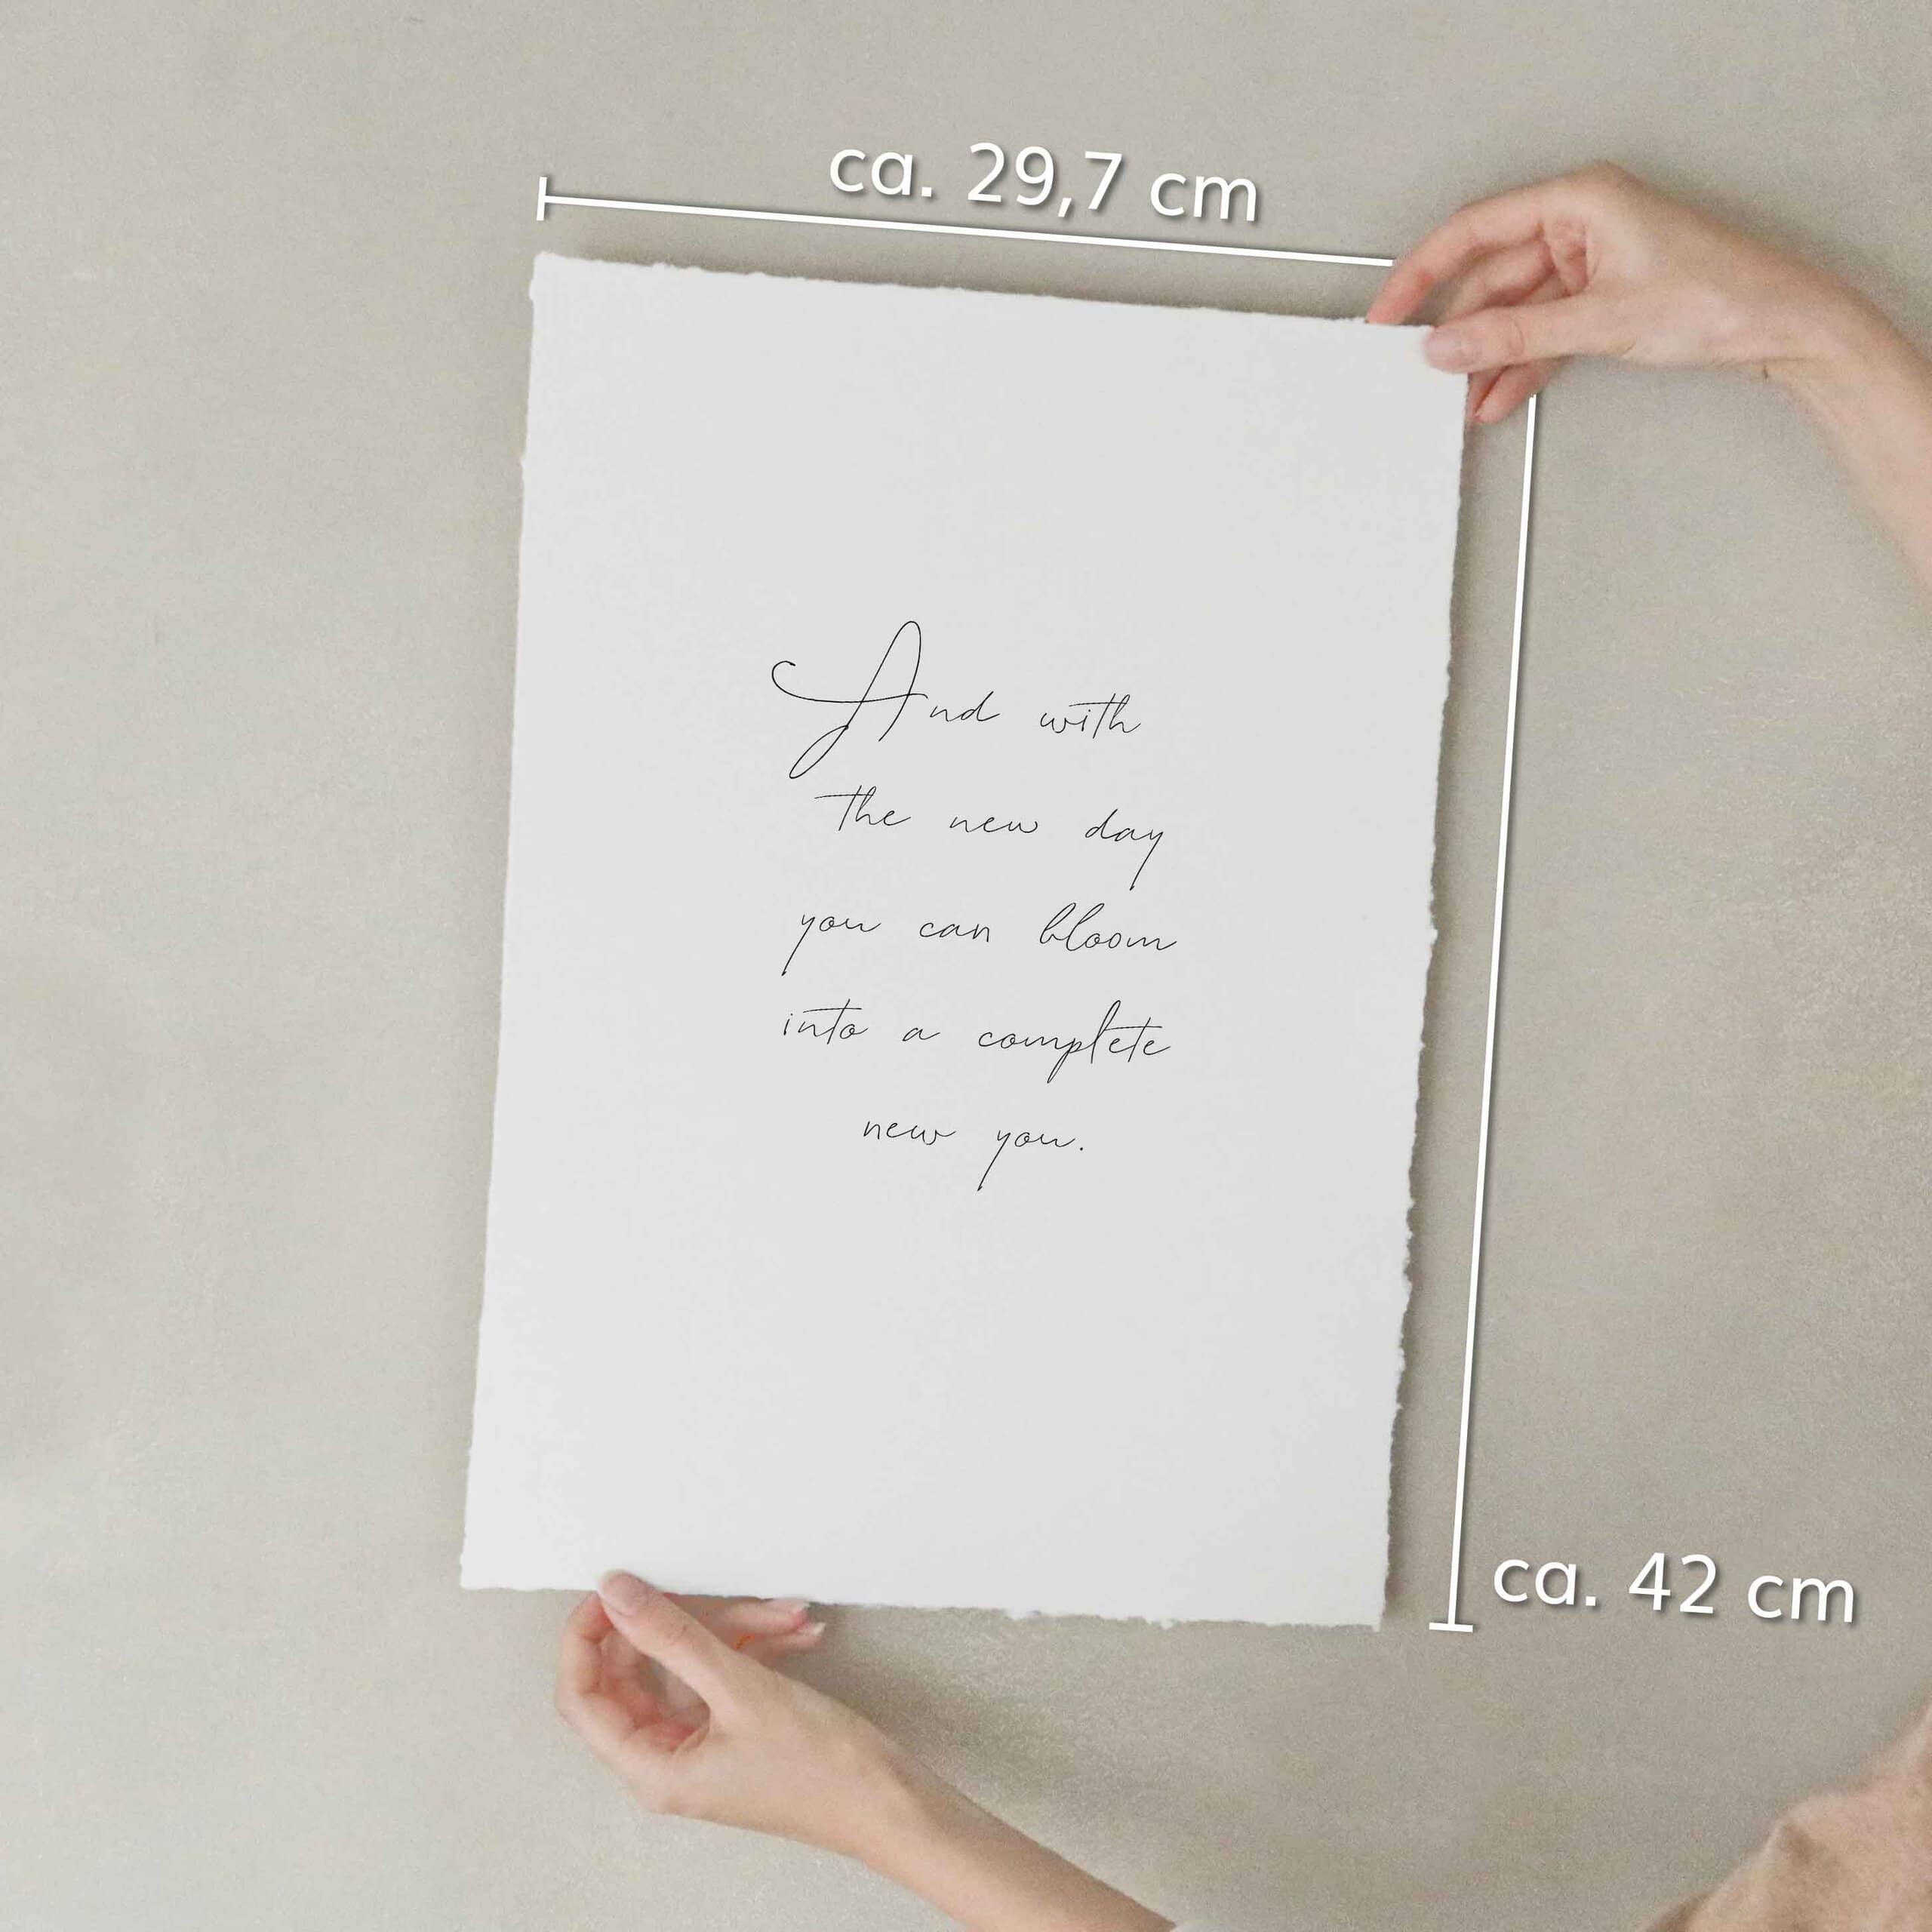 ca. 29,7 cm
And with
the new day
you can bloom
into a complete
new you.
ca. 42 cm